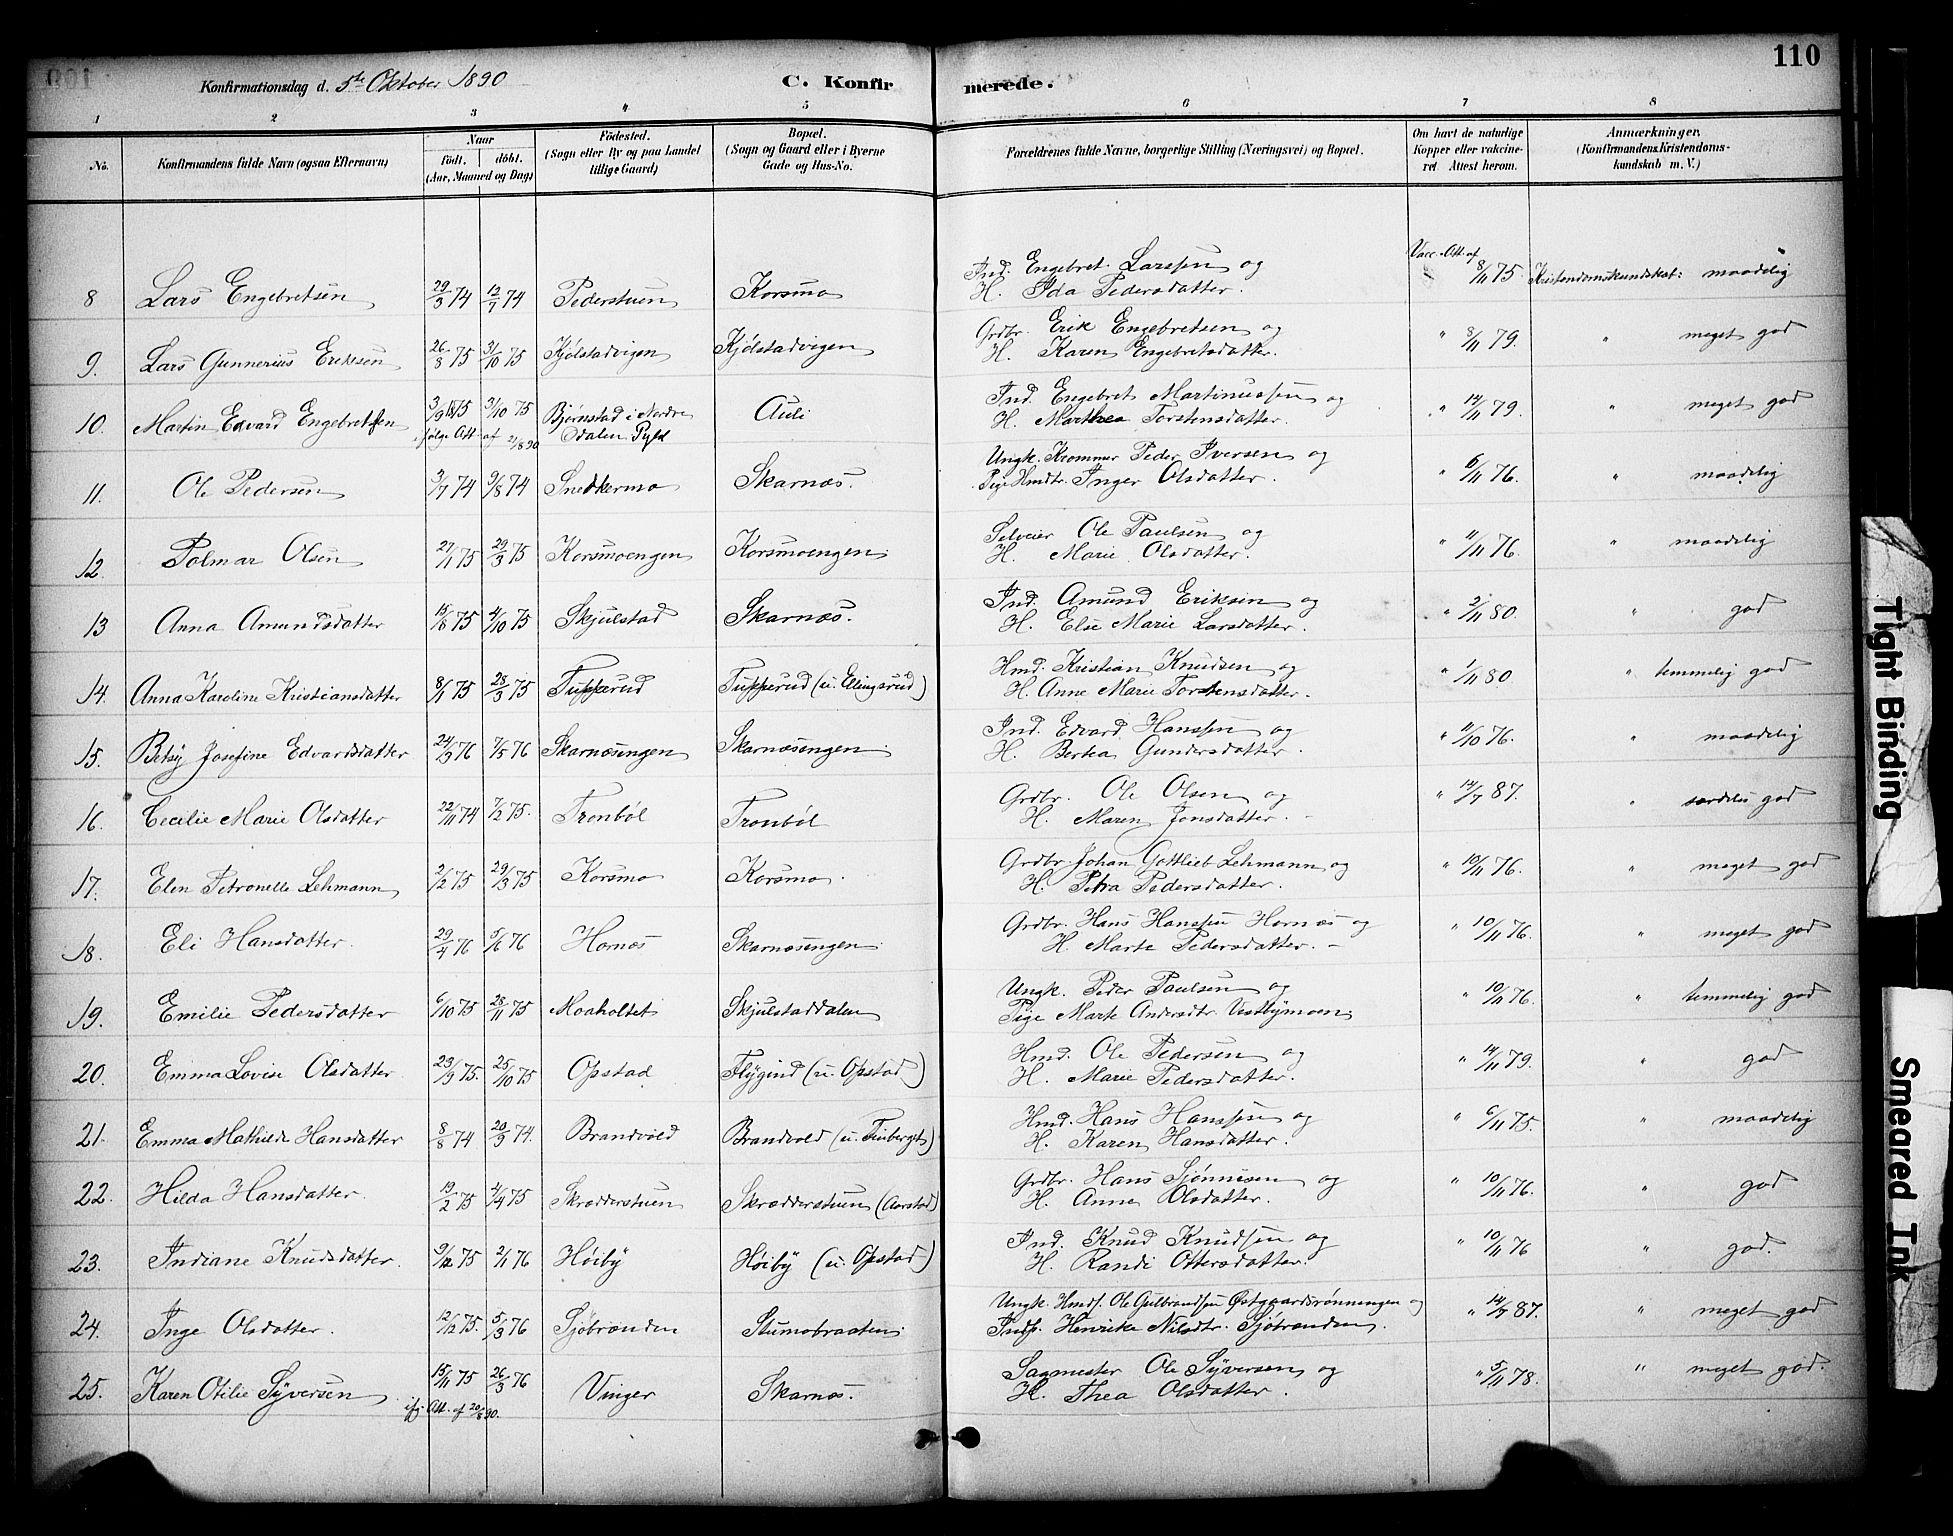 110
Konfirmationsdag d. 5te Oktober 1890
C. Konfirmerede.
1 2 3 4 5 6 7 8
No. Konfirmandens fulde Navn (ogsaa Efternavn) Naar født. døbt. (Aar, Maaned og Dag) Fødested. (Sogn eller By og paa Landet tillige Gaard) Bopæl. (Sogn og Gaard eller i Byerne Gade og Hus-No. Forældrenes fulde Navne, borgerlige Stilling (Næringsvei) og Bopæl. Om havt de naturlige Kopper eller vakcineret Attest herom. Anmærkninger. (Konfirmandens Kristendomskundskab m. V.)
8 Lars Engebretsen 29/3 74 12/7 74 Pederstuen Korsmo Ind. Engebret Larssen og Vacc. Att. af 8/11 75. Kristendomskundskab: maadelig
H. Ida Pedersdatter.
9. Lars Gunnerius Eriksen 26/8 75 31/10 75 Kjølstadvigen Kjølstadvigen Grdbr. Erik Engebretsen og " 8/11 79. " meget god
H. Karen Engebretsdatter.
10. Martin Edvard Engebretsen 3/9 75 3/10 75 Bjørnstad i Nordre Auli Ind. Engebret Martinussen og " 14/11 79. " meget god
ifølge Att. af 21/8 90 Odalen Pgld H. Marthea Torstensdatter.
11. Ole Pedersen 3/7 74 9/8 74 Snedkermo Skarnæs. Ungk. Peder Iversen og " 6/11 76. " maadelig
Pige Hmdtr. Inger Olsdatter.
12. Palmar Olsen 27/1 75 29/3 75 Korsmoengen Korsmoengen. Selveier Ole Paulsen og " 11/11 76. " maadelig
H. Marie Olsdatter.
13 Anna Amundsdatter 15/8 75 4/10 75 Skjulstad Skarnæs. Ind. Amund Eriksen og " 2/11 80. " god
H. Else Marie Larsdatter.
14. Anna Karoline Kristiansdatter 8/1 75 28/3 75 Tupperud Tupperud (u. Ellingsrud) Hmd. Kristian Knudsen og " 1/11 80. " temmelig god
H. Anne Marie Torstensdatter.
15. Betsy Josefine Edvardsdatter 24/3 76 7/5 76 Skarnæsengen Skarnæsengen. Ind. Edvard Hanssen og " 11/10 76. " maadelig
H. Bertea Gundersdatter.
16. Cecilie Marie Olsdatter 22/11 74 7/2 75. Tronbøl Tronbøl Grdbr. Ole Olsen og " 14/7 87. " særdeles god
H. Maren Jonsdatter.
17. Elen Petronelle Lehmann 2/2 75 29/3 75 Korsmo Korsmo. Grdbr. Johan Gottlieb Lehmann og " 10/11 76. " meget god
H. Petra Pedersdatter.
18. Eli Hansdatter. 29/4 76 5/6 76 Hornæs Skarnæsengen. Grdbr. Hans Hanssen Hornæs og " 10/11 76. " meget god
H. Marte Pedersdatter.
19. Emilie Pedersdatter 6/10 75 28/11 75 Moaholtet Skjulstaddalen Ungk. Peder Paulsen og " 10/11 76. " temmelig god
Pige Marte Andersdtr. Vestbymoen.
20. Emma Lovise Olsdatter 23/9 75. 25/10 75 Opstad Flygind (u. Opstad) Hmd. Ole Pedersen og " 14/11 79. " god
H. Marie Pedersdatter.
21. Emma Mathilde Hansdatter 8/8 74 20/9 74. Brandvold Brandvold Hmd. Hans Hanssen og " 6/11 75 " maadelig
H. Karen Hansdatter.
22. Hilda Hansdatter. 19/2 75 4/4 75 Skrædderstuen Skrædderstuen (Aarstad) Grdbr. Hans Sjønnesen og " 10/11 76. " god
H. Anne Olsdatter.
23. Indiane Knudsdatter. 9/12 75 2/1 76 Høiby Høiby (u. Opstad) Ind. Knud Knudsen og " 10/11 76 " god.
H. Randi Ottersdatter.
24. Inge Olsdatter. 12/12 75. 5/3 76 Sjøbranden Stumobraaten. Ungk. Hmds. Ole Gulbrandsen Østgaardsrønningen og " 14/7 87. " meget god
Inds. Henrike Nilsdtr. Sjøbranden.
25. Karen Otilie Syversen 15/11 75 26/3 76 Vinger Skarnæs. Sagmester Ole Syversen og " 5/11 78. " meget god.
ifg. Att. af 20/8 90. H. Thea Olsdatter.
Tight Binding
Smeared Ink